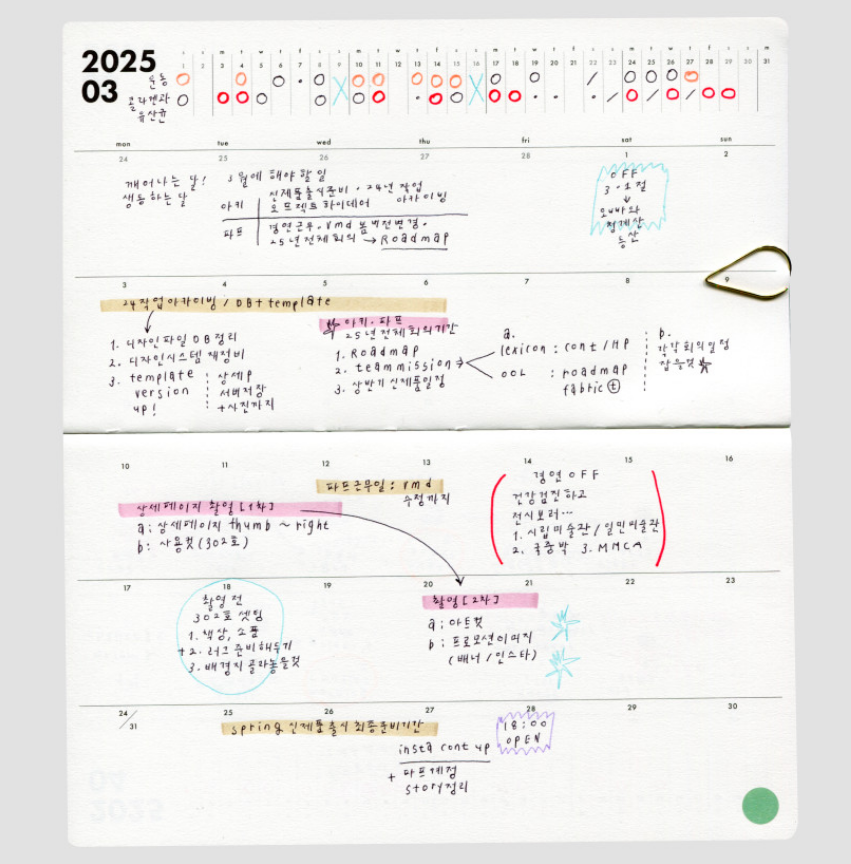 2025
03
s s m t w t f s s m t w t f s s m t w t f s s m t w t f s s m
1 2 3 4 5 6 7 8 9 10 11 12 13 14 15 16 17 18 19 20 21 22 23 24 25 26 27 28 29 30 31
운동
콜라겐과
유산균
mon tue wed thu fri sat sun
24 25 26 27 28 1 2
깨어나는 달!
생동하는 달
3월에 해야할일
아키
신제품출시준비 · 24년 작업
오브젝트 하이데어 아카이빙
파프
경연근무. vmd 봄버전변경.
25년전체회의 → Roadmap
OFF
3·1절
오빠와
청계산
등산
3 4 5 6 7 8 9
24작업아카이빙 / DB+template
1. 디자인파일 DB정리
2. 디자인시스템 재정비
3. template
version
up!
상세P
서버저장
+사진까지
아키·파프
25년전체회의기간
1. Roadmap
2. team mission
3. 상반기신제품일정
a.
lexicon : cont / HP
OOL : roadmap
fabric ⓣ
b.
각각회의일정
잡을것
10 11 12 13 14 15 16
상세페이지 촬영 [1차]
a: 상세페이지 thumb ~ right
b: 사용컷 (302호)
파프근무일 : vmd
수정까지
경연 OFF
건강검진하고
전시보러...
1. 시립미술관 / 일민미술관
2. 국중박 3. MMCA
17 18 19 20 21 22 23
촬영 전
302호 셋팅
1. 책상, 소품
+2. 러그준비해두기
3. 배경지 골라놓을것
촬영 [2차]
a: 아트컷
b: 프로모션이미지
(배너 / 인스타)
24/31 25 26 27 28 29 30
spring 신제품출시 최종준비기간
insta cont up
+ 파프계정
story정리
18:00
OPEN